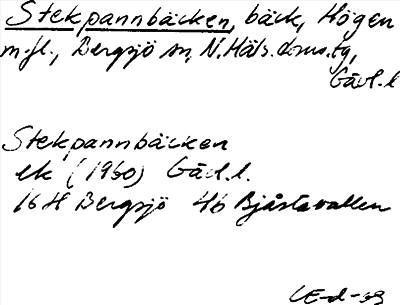 Stekpannbäcken, bäck, Högen
m.fl., Bergsjö sn, N. Häls. dms. tg,
Gävl. l
Stekpannbäcken
ek (1960) Gävl. l.
16H Bergsjö 4b Bjåstavallen